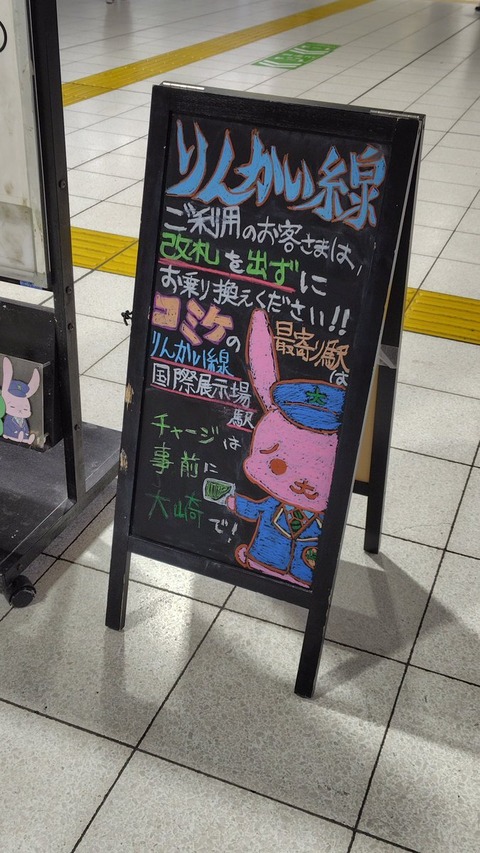 りんかい線
ご利用のお客さまは、
改札を出ずに
お乗り換えください!!
コミケの
最寄り駅は
りんかい線
国際展示場
駅
チャージは
事前に
大崎で!
大